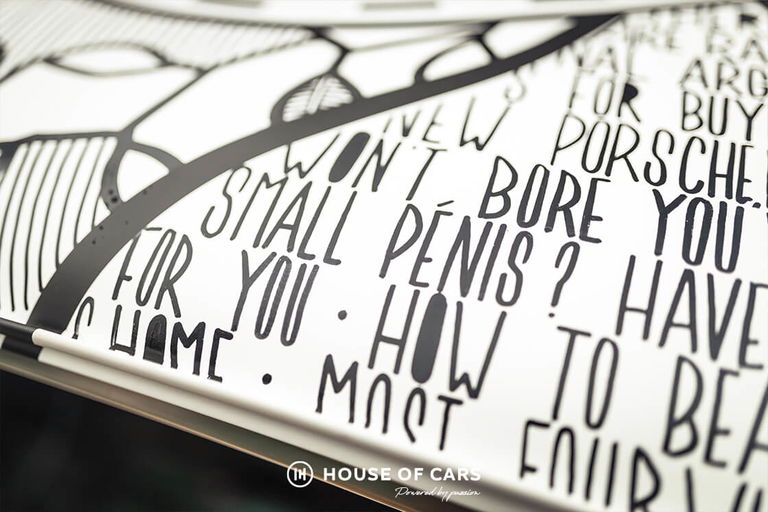 ARG
FOR BUY
NEW PORSCHE.
WON'T BORE YOU
SMALL PÉNIS? HAVE
FOR YOU · HOW TO
HOME · MOST FOUR
HOUSE OF CARS
Powered by passion